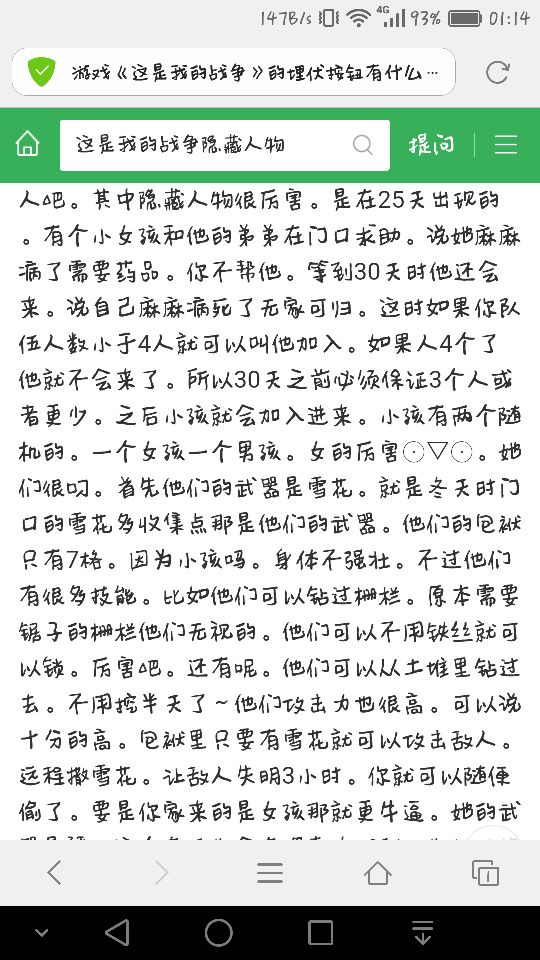 147B/s 4G 93% 01:14
游戏《这是我的战争》的埋伏按钮有什么…
这是我的战争隐藏人物 提问
人吧。其中隐藏人物很厉害。是在25天出现的
。有个小女孩和他的弟弟在门口求助。说她麻麻
病了需要药品。你不帮他。等到30天时他还会
来。说自己麻麻病死了无家可归。这时如果你队
伍人数小于4人就可以叫他加入。如果人4个了
他就不会来了。所以30天之前必须保证3个人或
者更少。之后小孩就会加入进来。小孩有两个随
机的。一个女孩一个男孩。女的厉害⊙▽⊙。她
们很叼。首先他们的武器是雪花。就是冬天时门
口的雪花多收集点那是他们的武器。他们的包袱
只有7格。因为小孩吗。身体不强壮。不过他们
有很多技能。比如他们可以钻过栅栏。原本需要
锯子的栅栏他们无视的。他们可以不用铁丝就可
以锁。厉害吧。还有呢。他们可以从土堆里钻过
去。不用挖半天了~他们攻击力也很高。可以说
十分的高。包袱里只要有雪花就可以攻击敌人。
远程撒雪花。让敌人失明3小时。你就可以随便
偷了。要是你家来的是女孩那就更牛逼。她的武